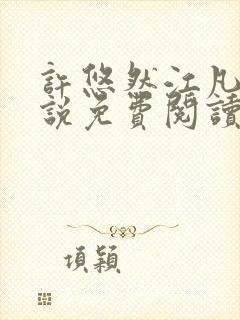 許悠然江凡
說免費閱讀
項穎